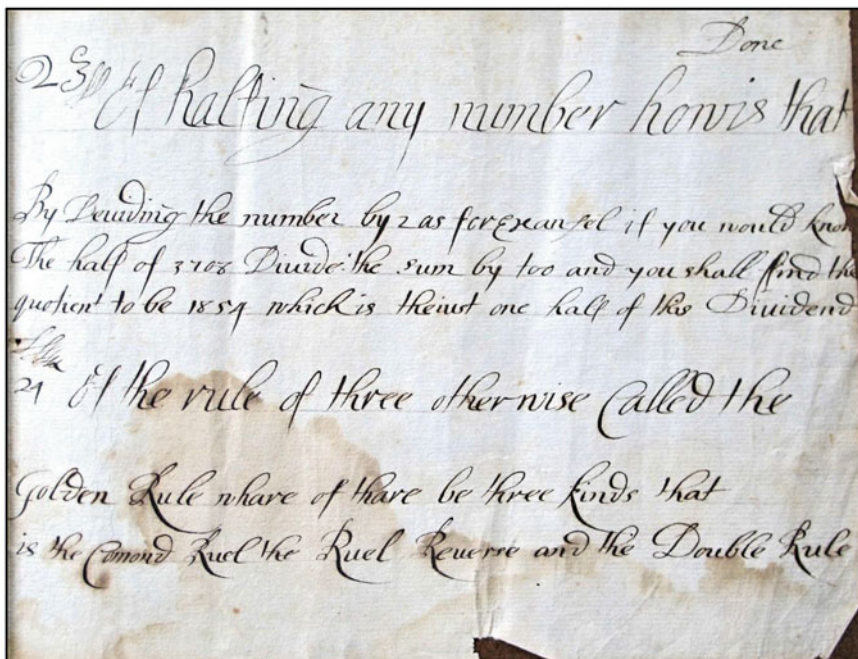 Done
23 Of halfing any number how is that
By Deuiding the number by 2 as for Exampel if you would know
The half of 3708 Diuide the sum by too and you shall find the
quotient to be 1854 which is the iust one half of this Dividend
24 Of the rule of three otherwise Called the
Golden Rule whare of thare be three kinds that
is the Comond Ruel the Ruel Reverse and the Double Rule